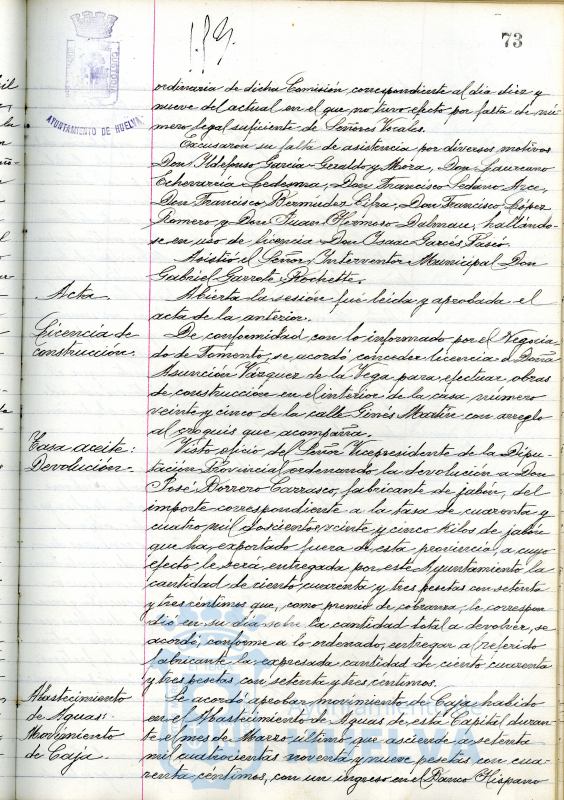 73
AYUNTAMIENTO DE HUELVA
ordinaria de dicha Comisión, correspondiente al dia diez y
nueve del actual en el que no tuvo efecto por falta de nú-
mero legal suficiente de Señores Vocales.
Excusaron su falta de asistencia por diversos motivos
Don Ildefonso García-Geraldo y Mora, Don Laureano
Echevarría Ledesma, Don Francisco Sedano Arce,
Don Francisco Bermudez Cifra, Don Francisco López
Romero y Don Juan Hermoso Dalmau, hallándo-
se en uso de licencia Don Isaac Garcés
Asistió el Señor Interventor Municipal Don
Gabriel Garrote Rochette.
Acta.
Abierta la sesión fué leida y aprobada el
acta de la anterior.
Licencia de
construcción.
De conformidad con lo informado por el Negocia-
do de Fomento, se acordó conceder licencia a Doña
Asunción Vázquez de la Vega para efectuar obras
de construcción en el interior de la casa número
veinte y cinco de la calle Ginés Martín con arreglo
al croquis que acompaña.
Tasa aceite:
Devolución.
Visto oficio del Señor Vicepresidente de la Dipu-
tación Provincial ordenando la devolución a Don
José Borrero Carrasco, fabricante de jabón, del
importe correspondiente a la tasa de cuarenta y
cuatro mil doscientos veinte y cinco kilos de jabón
que ha exportado fuera de esta provincia, a cuyo
efecto le será entregada por este Ayuntamiento la
cantidad de ciento cuarenta y tres pesetas con setenta
y tres céntimos que, como premio de cobranza, le correspon-
dió en su dia sobre la cantidad total a devolver, se
acordó, conforme a lo ordenado, entregar al referido
fabricante la expresada cantidad de ciento cuarenta
y tres pesetas con setenta y tres céntimos.
Abastecimiento
de Aguas:
Movimiento
de Caja.
Se acordó aprobar movimiento de Caja habido
en el Abastecimiento de Aguas de esta Capital duran-
te el mes de Marzo último que asciende a setenta
mil cuatrocientas noventa y nueve pesetas con cua-
renta céntimos, con un ingreso en el Banco Hispano
HUELVA